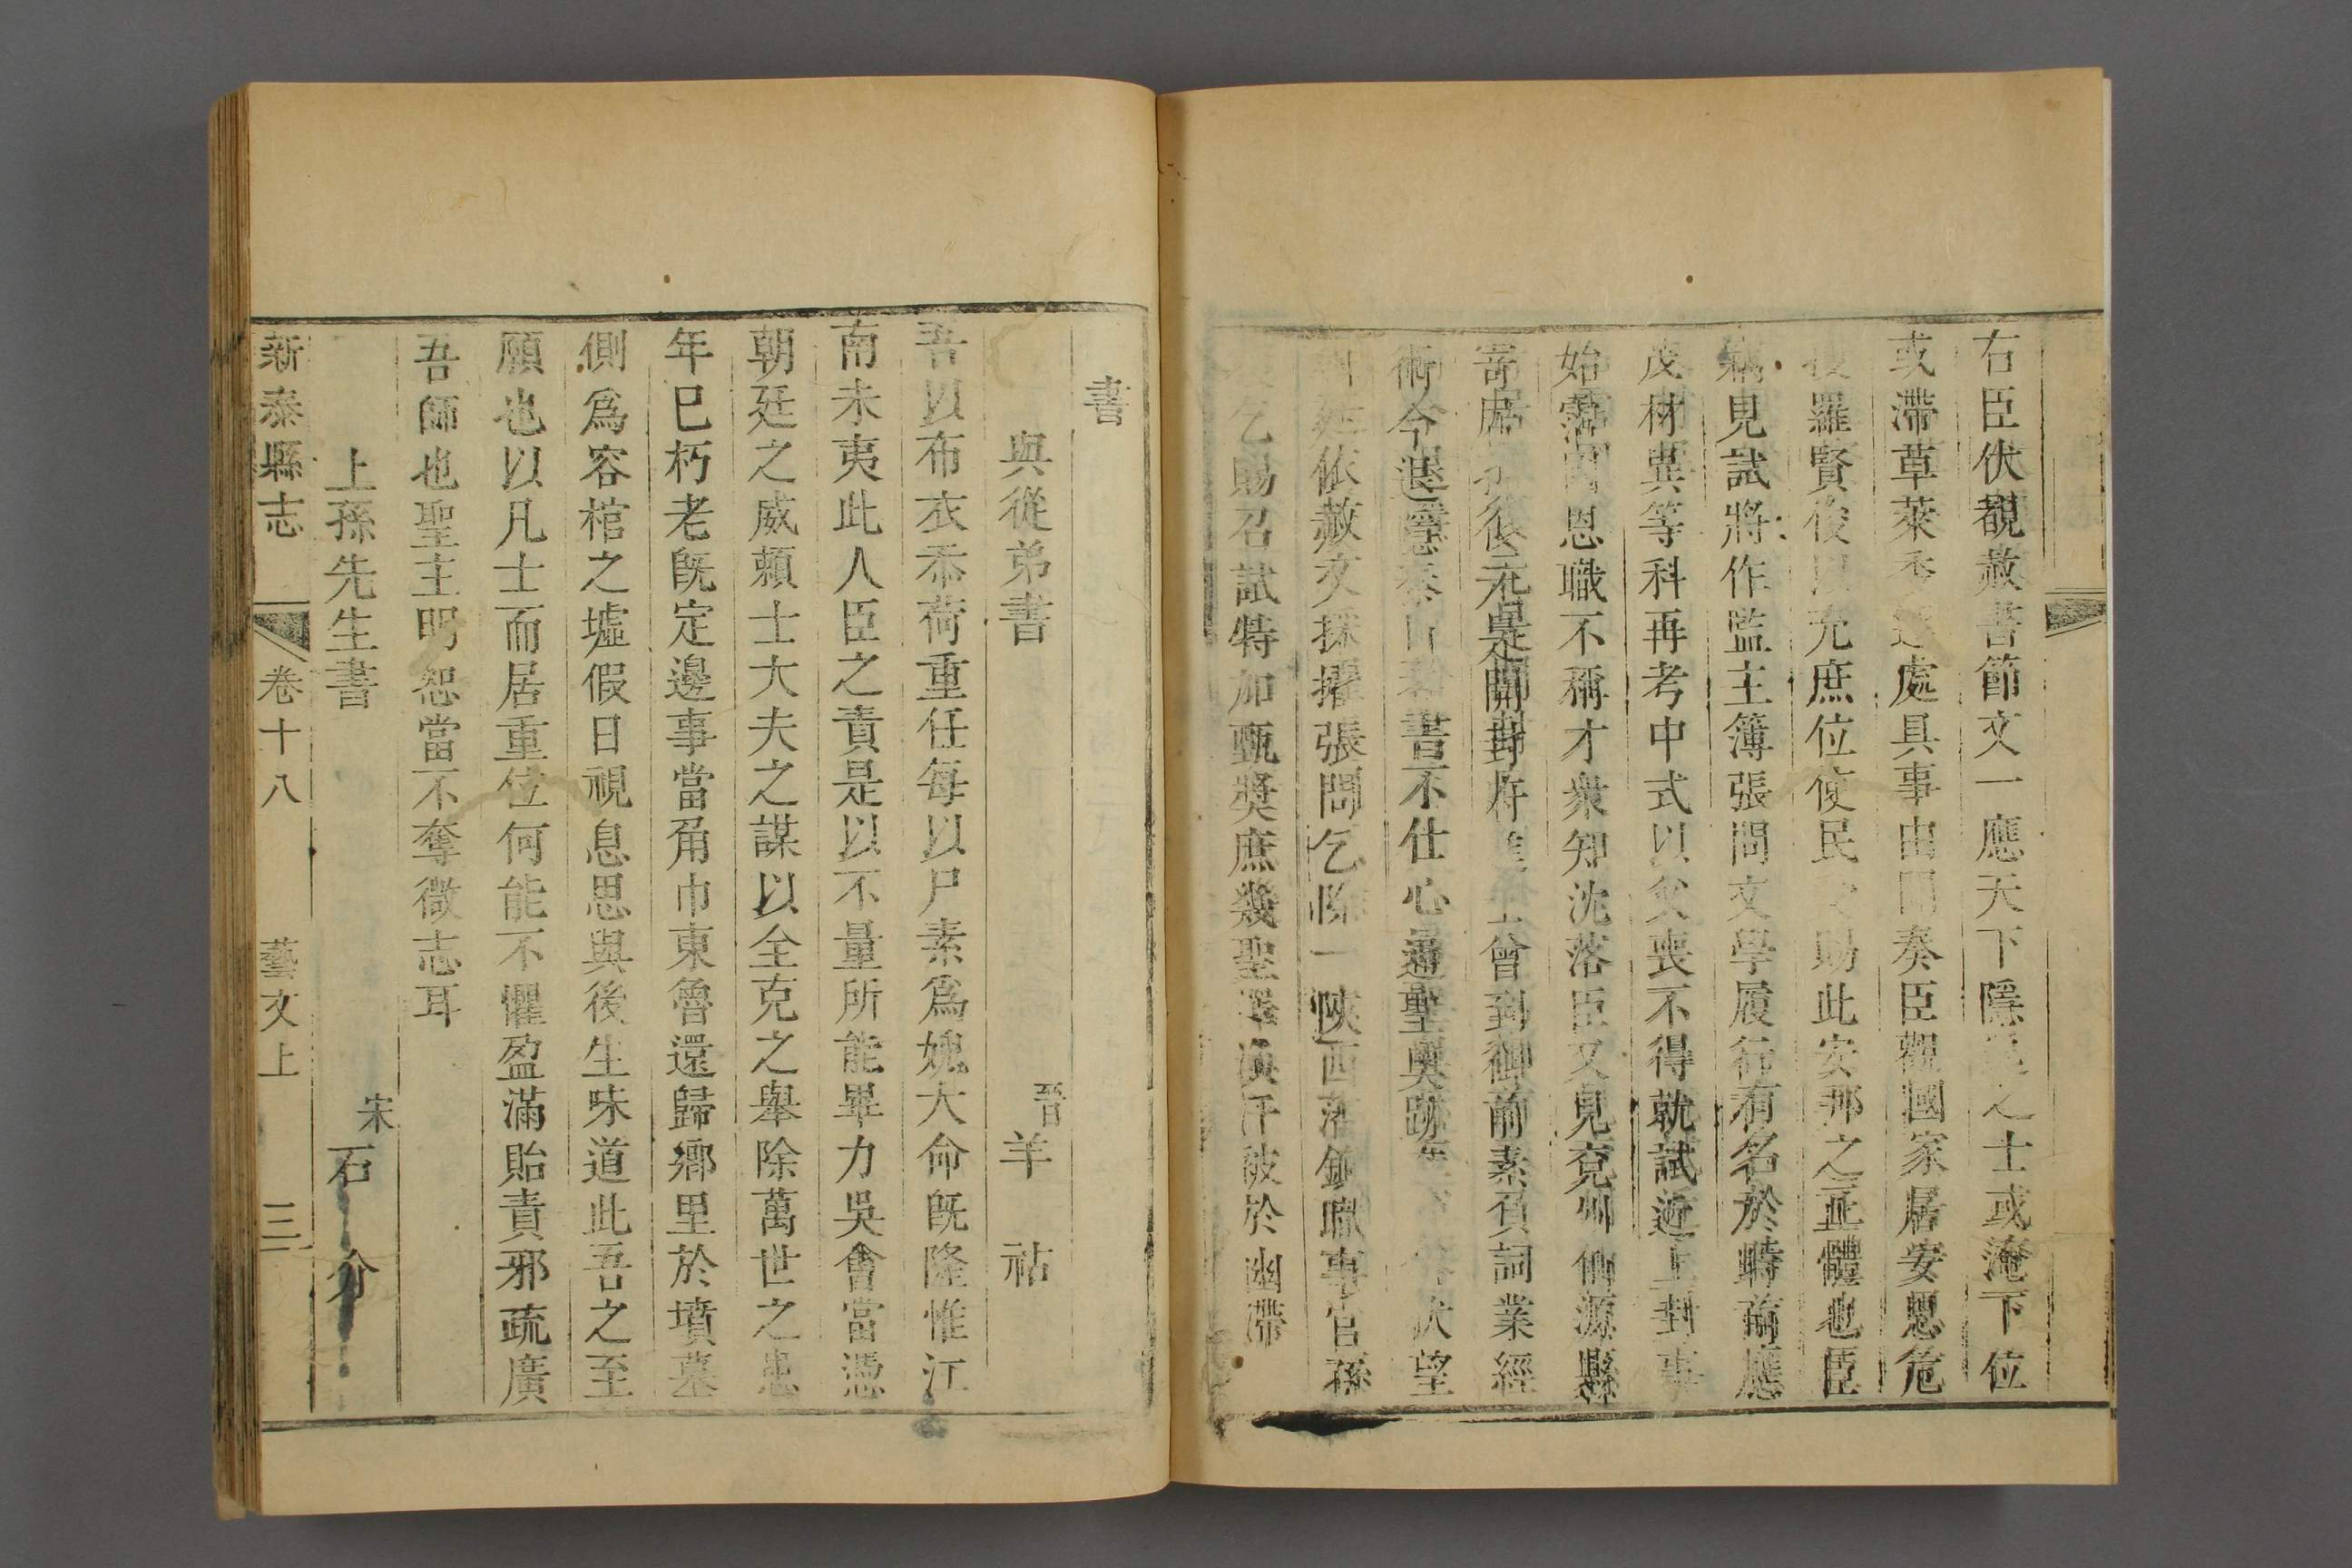 右臣伏覩赦書節文一應天下隱之士或淹下位
或滯草萊處具事由聞奏臣觀國家居安思危
羅賢俊以充庶位使民此安邦之正體也臣
竊見試將作監主簿張問文學履行有名於時前應
茂材異等科再考中式以父喪不得就試近上封事
始霑恩職不稱才衆知沈落臣又見兗州仙源縣
寄居後元是開封府進士曾到御前素負詞業經
術今退隱泰山著書不仕心通聖奧跡伏望
依赦文採擢張問乞除一陝西藩鎮職事官孫
乞賜召試特加甄奬庶幾聖澤渙汗被於幽滯
書
與從弟書 晉羊祜
吾以布衣忝荷重任每以尸素爲媿大命旣隆惟江
南未夷此人臣之責是以不量所能畢力吳會當憑
朝廷之威賴士大夫之謀以全克之舉除萬世之患
年已朽老旣定邊事當角巾東魯還歸鄕里於墳墓
側爲容棺之墟假日視息思與後生味道此吾之至
願也以凡士而居重位何能不懼盈滿貽責邪疏廣
吾師也聖主明恕當不奪微志耳
上孫先生書 宋石介
新泰縣志 卷十八 藝文上 三